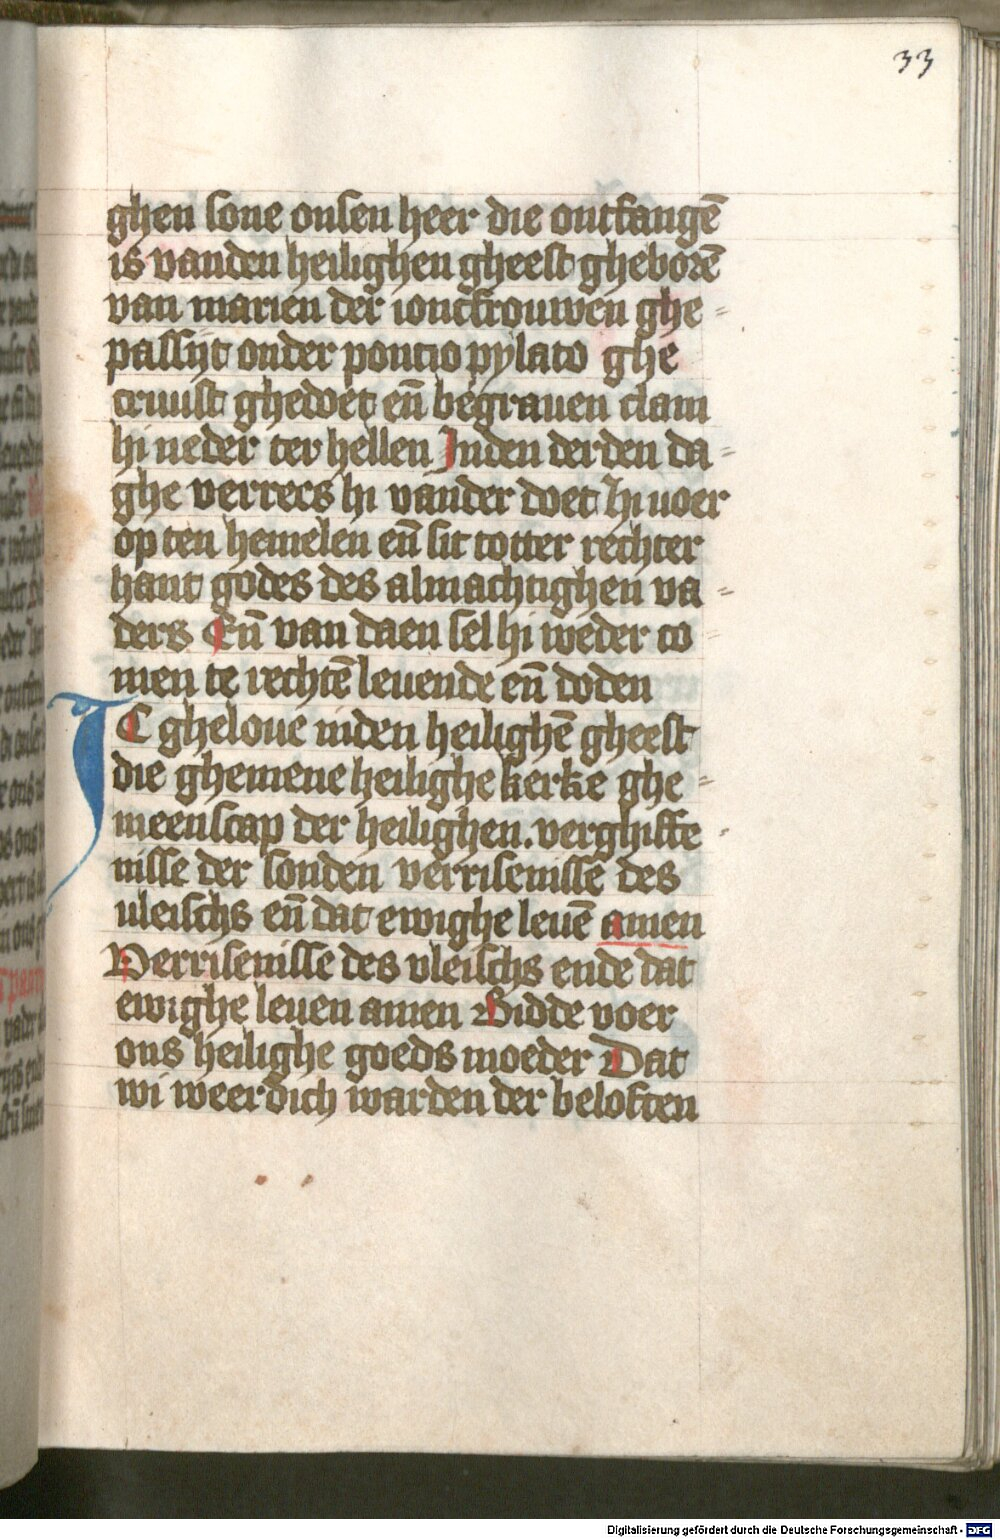 33
ghen sone onsen heer die ontfangē
is vanden heilighen gheest gheborē
van marien der ioncfrouwen ghe=
passijt onder poncio pylato ghe
cruust ghedoet eñ begrauen clam
hi neder ter hellen Inden derden da=
ghe verrees hi vander doet Hi uoer
op ten hemelen eñ sit totter rechter
hant godes des almachtighen va=
ders Eñ van daen sel hi weder co
men te rechtē leuende eñ doden
IC gheloue inden heilighē gheest
die ghemene heilighe kerke ghe=
meenscap der heilighen. verghiffe
nisse der sonden verrisenisse des
uleischs eñ dat ewighe leuē amen
Verrisenisse des vleischs ende dat
ewighe leuen amen Bidde voer
ons heilighe goeds moeder Dat
wi weerdich warden der beloften
Digitalisierung gefördert durch die Deutsche Forschungsgemeinschaft - DFG